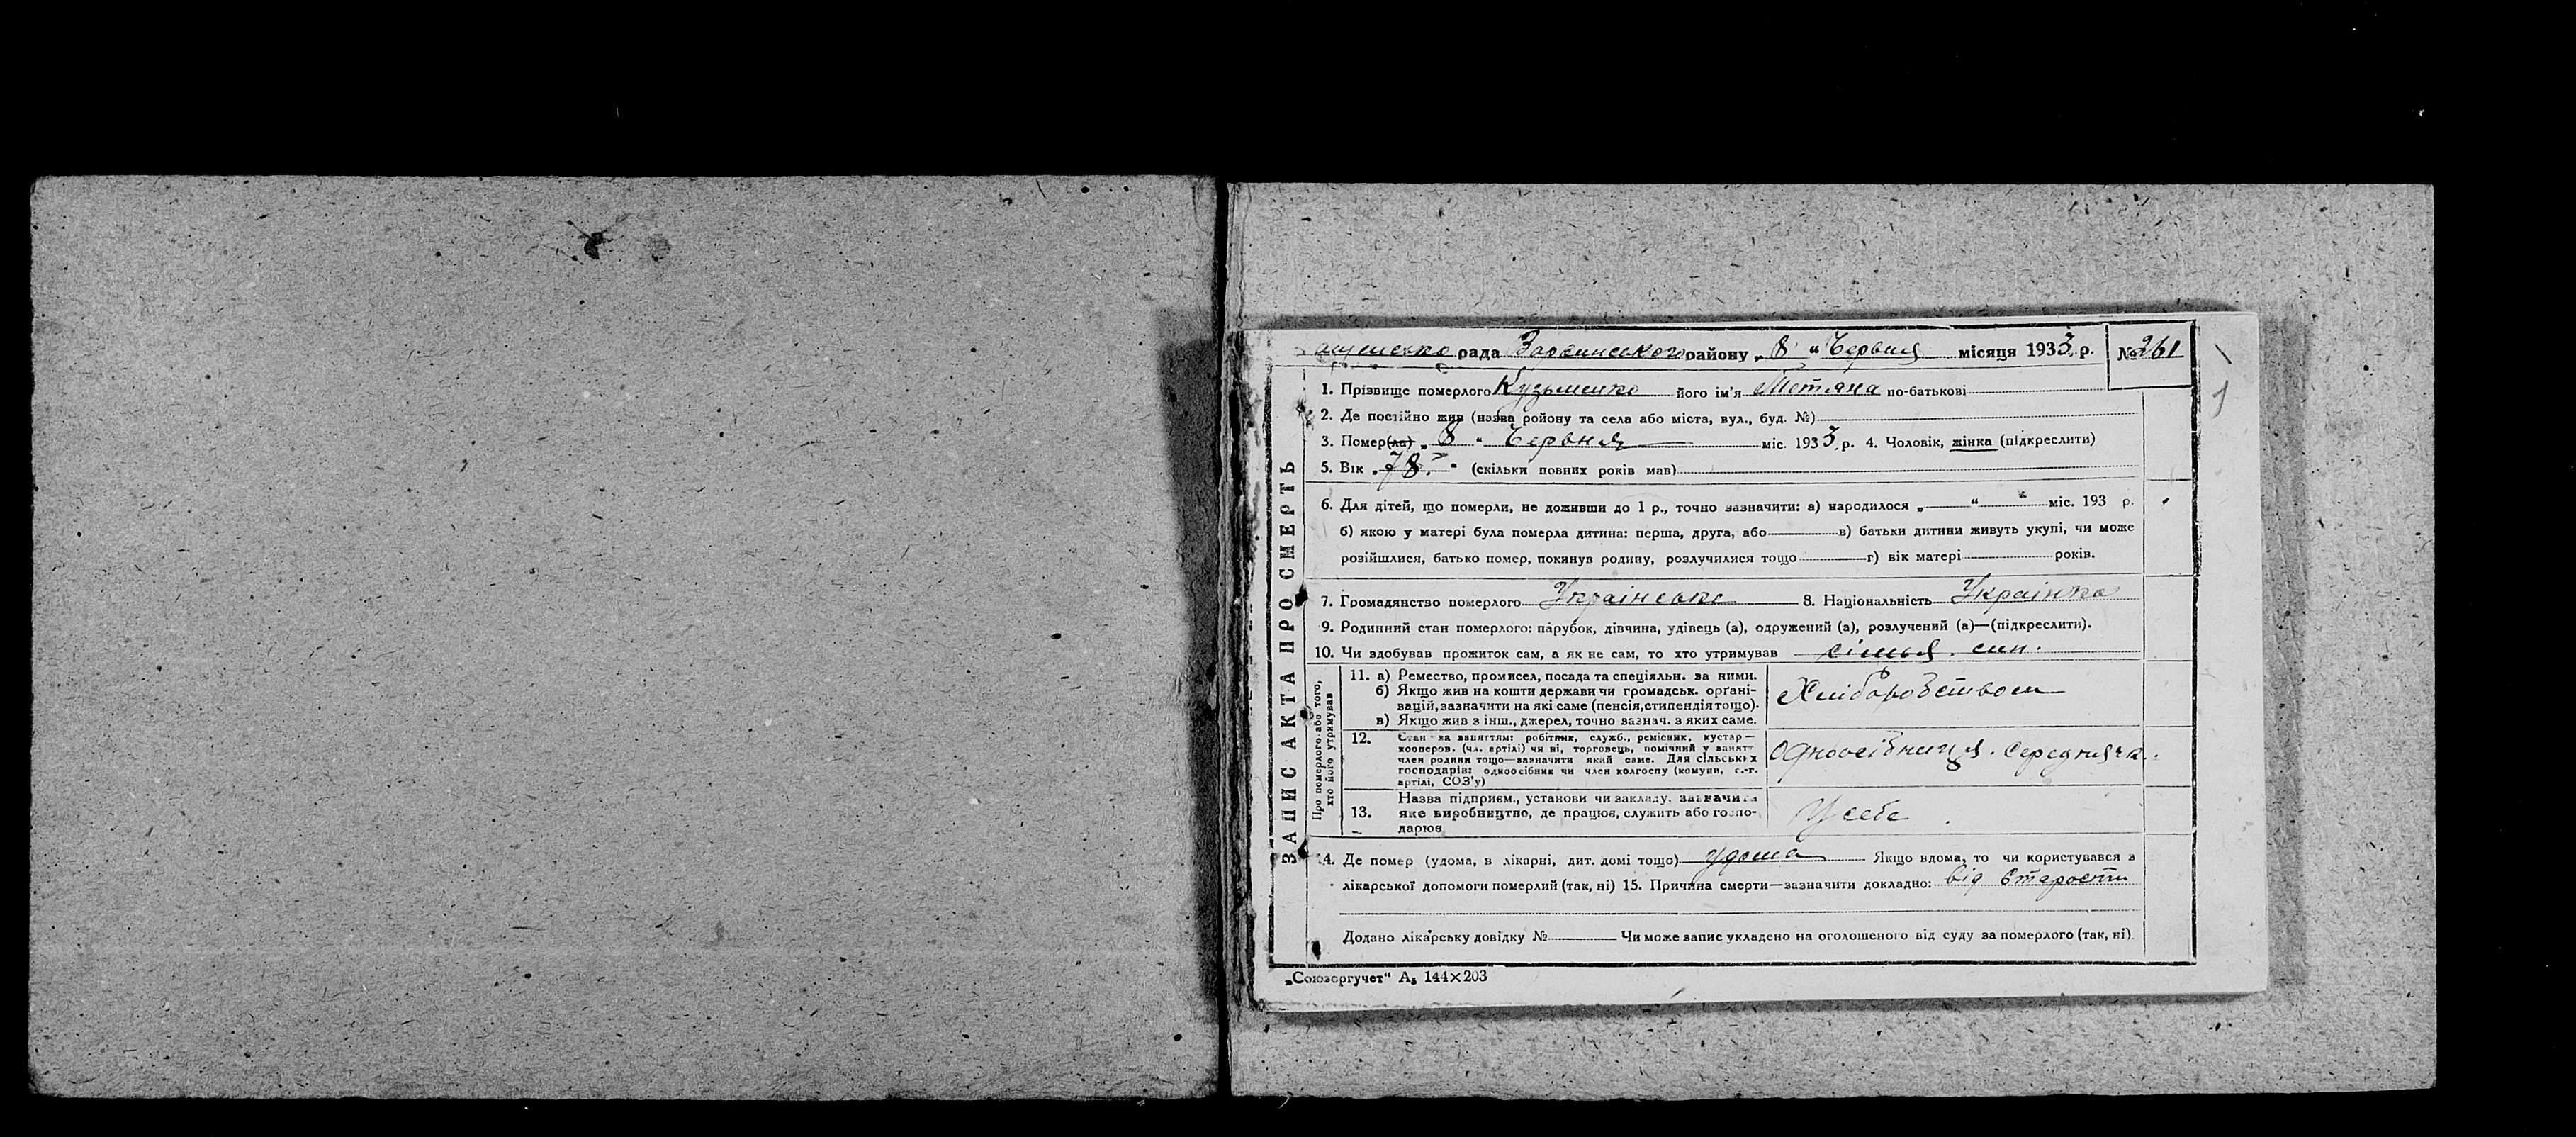 рада району „ 8 “ Червня місяця 1933 р. № 261
ЗАПИС АКТА ПРО СМЕРТЬ
1. Прізвище померлого Кузьменко його ім'я Тетяна по-батькові
2. Де постійно жив (назва ройону та села або міста, вул., буд. №)
3. Помер(ла) „ 8 “ Червня міс. 1933 р. 4. Чоловік, жінка (підкреслити)
5. Вік „ 78 “ (скільки повних років мав)
6. Для дітей, що померли, не доживши до 1 р., точно зазначити: а) народилося „ “ міс. 193 р.
б) якою у матері була померла дитина: перша, друга, або в) батьки дитини живуть укупі, чи може
розійшлися, батько помер, покинув родину, розлучилися тощо г) вік матері років.
7. Громадянство померлого Українське 8. Національність Українка
9. Родинний стан померлого: парубок, дівчина, удівець (а), одружений (а), розлучений (а)—(підкреслити).
10. Чи здобував прожиток сам, а як не сам, то хто утримував сімья. син.
Про померлого або того,
хто його утримував
11. а) Ремество, промисел, посада та спеціяльн. за ними.
б) Якщо жив на кошти держави чи громадськ. органі-
зацій, зазначити на які саме (пенсія, стипендія тощо).
в) Якщо жив з інш., джерел, точно зазнач. з яких саме.
Хліборобством
12. Стан за заняттям: робітник, служб., ремісник, кустар—
кооперов. (чл. артілі) чи ні, торговець, помічний у занятт
член родини тощо—зазначити який саме. Для сільських
господарів: одноосібник чи член колгоспу (комуни, с.-г.
артілі, СОЗ'у)
Одноосібниця. середнячк.
13. Назва підприєм., установи чи закладу, зазначити
яке виробництво, де працює, служить або госпо-
дарює
У себе
14. Де помер (удома, в лікарні, дит. домі тощо) удома Якщо вдома, то чи користувався з
лікарської допомоги померлий (так, ні) 15. Причина смерти—зазначити докладно: від старости
Додано лікарську довідку № Чи може запис укладено на оголошеного від суду за померлого (так, ні).
„Союзоргучет“ А₅ 144×203